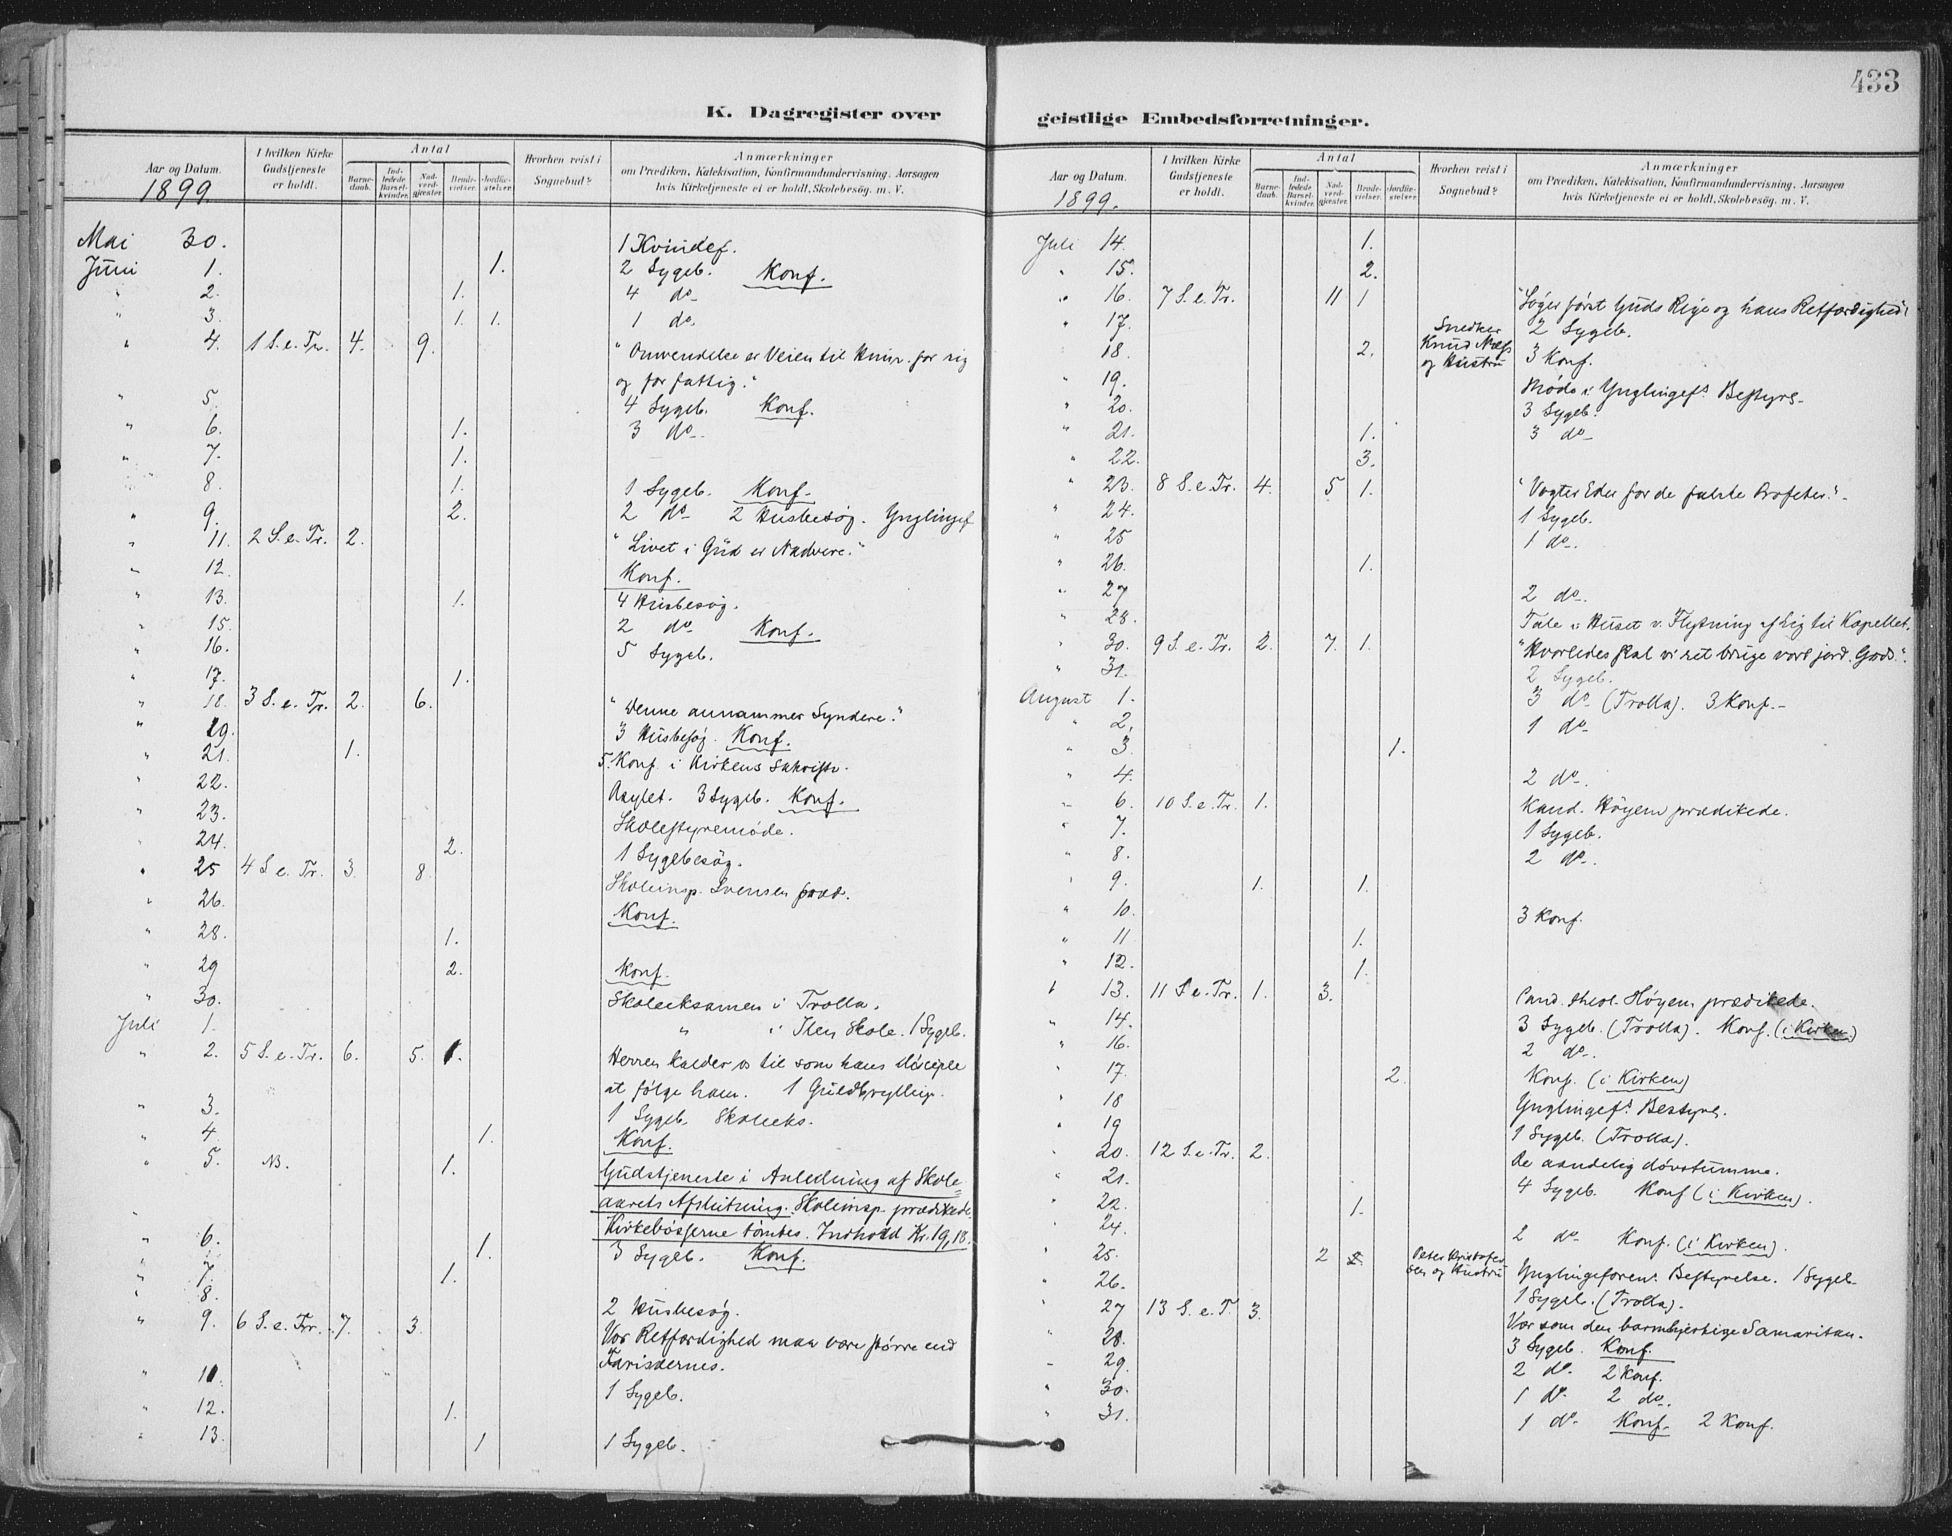 433
K. Dagregister over geistlige Embedsforretninger.
Aar og Datum. I hvilken Kirke Gudstjeneste er holdt. Antal Barnedaab. Indledede Barselkvinder. Nadverdgjæster. Brudevielser. Jordfæstelser. Hvorhen reist i Sognebud? Anmærkninger om Prædiken, Katekisation, Konfirmandundervisning, Aarsagen hvis Kirketjeneste ei er holdt, Skolebesög. m. V.
1899.
Mai 30. 1 Kvindef.
Juni 1. 1. 2 Sygeb. Konf.
" 2. 1. 4 do
" 3. 1. 1. 1 do.
" 4. 1 S. e. Tr. 4. 9. "Omvendelse er Veien til Himr. for rig
og for fattig."
" 5. 4 Sygeb. Konf.
" 6. 1. 3 do.
" 7. 1.
" 8. 1. 1 Sygeb. Konf.
" 9. 2. 2 do 2 Husbesøg. Ynglingef
" 11. 2 S. e. Tr. 2. "Livet i Gud er Nadvere."
" 12. Konf.
" 13. 1. 4 Husbesøg.
" 15. 2 do Konf.
" 16. 5 Sygeb.
" 17. 1.
" 18. 3 S. e. Tr. 2. 6. "Denne annammer Syndere."
" 19. 3 Husbesøg. Konf.
" 21. 1. 5. Konf. i Kirkens Sakristi.
" 22. Asylet. 3 Sygeb. Konf.
" 23. Skolestyremøde.
" 24. 2. 1 Sygebesøg.
" 25 4 S. e. Tr. 3. 8. Skoleinsp. Svensen præd.
" 26. Konf.
" 28. 1.
" 29 2. Konf.
" 30. Skoleeksamen i Trolla.
Juli 1. " i Ilens Skole. 1 Sygeb.
" 2. 5 S. e. Tr. 6. 5. 1. Herren kalder os til som hans disciple
at følge ham. 1 Guldbryllup.
" 3. 1 Sygeb. Skoleeks.
" 4 1. Konf.
" 5. NB. 1. Gudstjeneste i Anledning af Skole=
aarets Afslutning. Skoleinsp. prædikede.
Kirkebøsserne tømtes. Indhold Kr. 19,18.
" 6. 1. 3 Sygeb. Konf.
" 7. 1.
" 8. 2 Husbesøg.
" 9. 6 S. e. Tr. 7. 3. Vor Retfærdighed maa være større end
Farisæernes.
" 11. 1 Sygeb.
" 12. 1.
" 13. 1 1 Sygeb.
Aar og Datum. I hvilken Kirke Gudstjeneste er holdt. Antal Barnedaab. Indledede Barselkvinder. Nadverdgjæster. Brudevielser. Jordfæstelser. Hvorhen reist i Sognebud? Anmærkninger om Prædiken, Katekisation, Konfirmandundervisning, Aarsagen hvis Kirketjeneste ei er holdt, Skolebesög. m. V.
1899.
Juli 14. 1.
" 15. 2.
" 16. 7 S. e. Tr. 11 1 "Søger først Guds Rige og hans Retfærdighed"
" 17. Snedker 2 Sygeb.
" 18. 2. Knud Næss og Hustru 3 Konf.
" 19. Møde i Ynglingef.s Bestyre.
" 20. 3 Sygeb.
" 21. 1. 3 do
" 22. 3.
" 23. 8 S. e. Tr. 4. 5 1. "Vogter Eder for de falske Profeter."
" 24. 1 Sygeb.
" 25 1 do.
" 26. 1.
" 27 2 do.
" 28. Tale i Huset v. Flytning af Lig til Kapellet.
" 30. 9 S. e. Tr. 2. 7. 1. "Hvorledes skal vi ret bruge vort jord. Gods."
" 31. 2 Sygeb.
August 1. 3 do (Trolla). 3 Konf.
" 2. 1 do
" 3. 1.
" 4. 2 do.
" 6. 10 S. e. Tr. 1. Kand. Høyem prædikede.
" 7. 1 Sygeb.
" 8. 2 do.
" 9. 1. 1.
" 10. 3 Konf.
" 11 1.
" 12. 1.
" 13. 11 S. e. Tr. 1. 3. Cand. theol. Høyem prædikede.
" 14. 3 Sygeb. (Trolla). Konf. (i Kirken)
" 16. 2 do.
" 17. 2. Konf. (i Kirken)
" 18 Ynglingef.s Bestyre.
" 19 1 Sygeb. (Trolla).
" 20. 12 S. e. Tr. 2. De aandelig døvstumme.
" 21. 4 Sygeb. Konf (i Kirken).
" 22. 1.
" 24. 2 do Konf. (i Kirken).
" 25. 2 Peter Kristofersen og Hustru Ynglingeforens Bestyrelse. 1 Sygeb
" 26. 1 Sygeb. (Trolla).
" 27 13 S. e. T. 3. Vær som den barmhjertige Samaritan.
" 28. 3 Sygeb. Konf.
" 29. 2 do. 2 Konf.
" 30. 1 do. 2 do.
" 31. 1 do. Konf. 2 Konf.